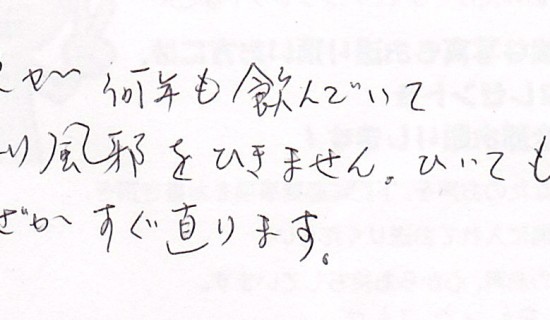 が 何年も飲んでいて
り風邪をひきません。ひいても
ぜか すぐ直ります。